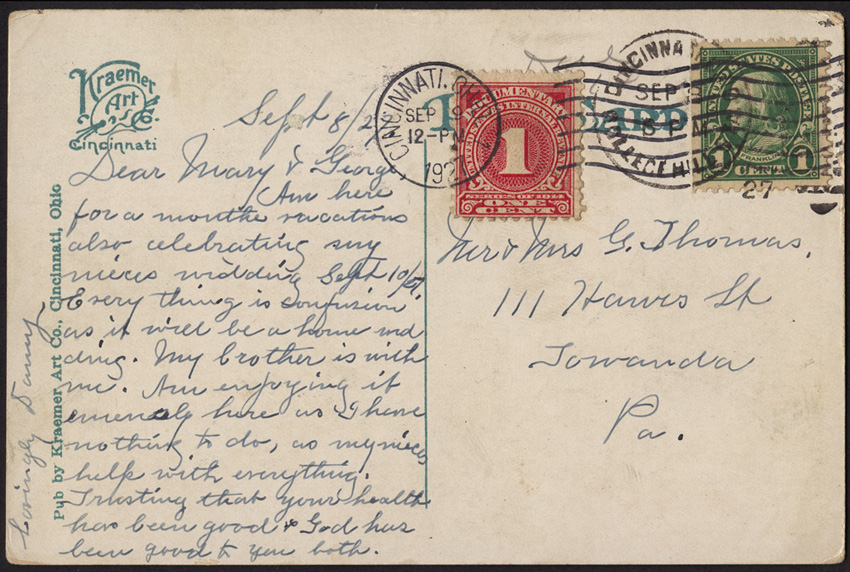 Kraemer
Art
Co.
Cincinnati
Pub by Kraemer Art Co., Cincinnati, Ohio
Sept 8/27
Dear Mary & George
Am here
for a months vacations
also celebrating my
nieces widding Sept 10/27.
Every thing is confusion
as it will be a home wed
ding. My brother is with
me. Am enjoying it
here as I have
nothing to do, as my nieces
help with everything.
Trusting that your health
has been good & God has
been good to you both.
Lovingly Danny
CINCINNATI, O
SEP 9
12-PM
192
DOCUMENTARY
UNITED STATES INTERNAL REVENUE
1
SERIES OF 1914
ONE
CENT
CARD
CINCINNATI
SEP
8 PM
COLLEGE HILL STA
27
UNITED STATES POSTAGE
FRANKLIN
1 CENT 1
Mr & Mrs G. Thomas.
111 Hawes St
Towanda
Pa.